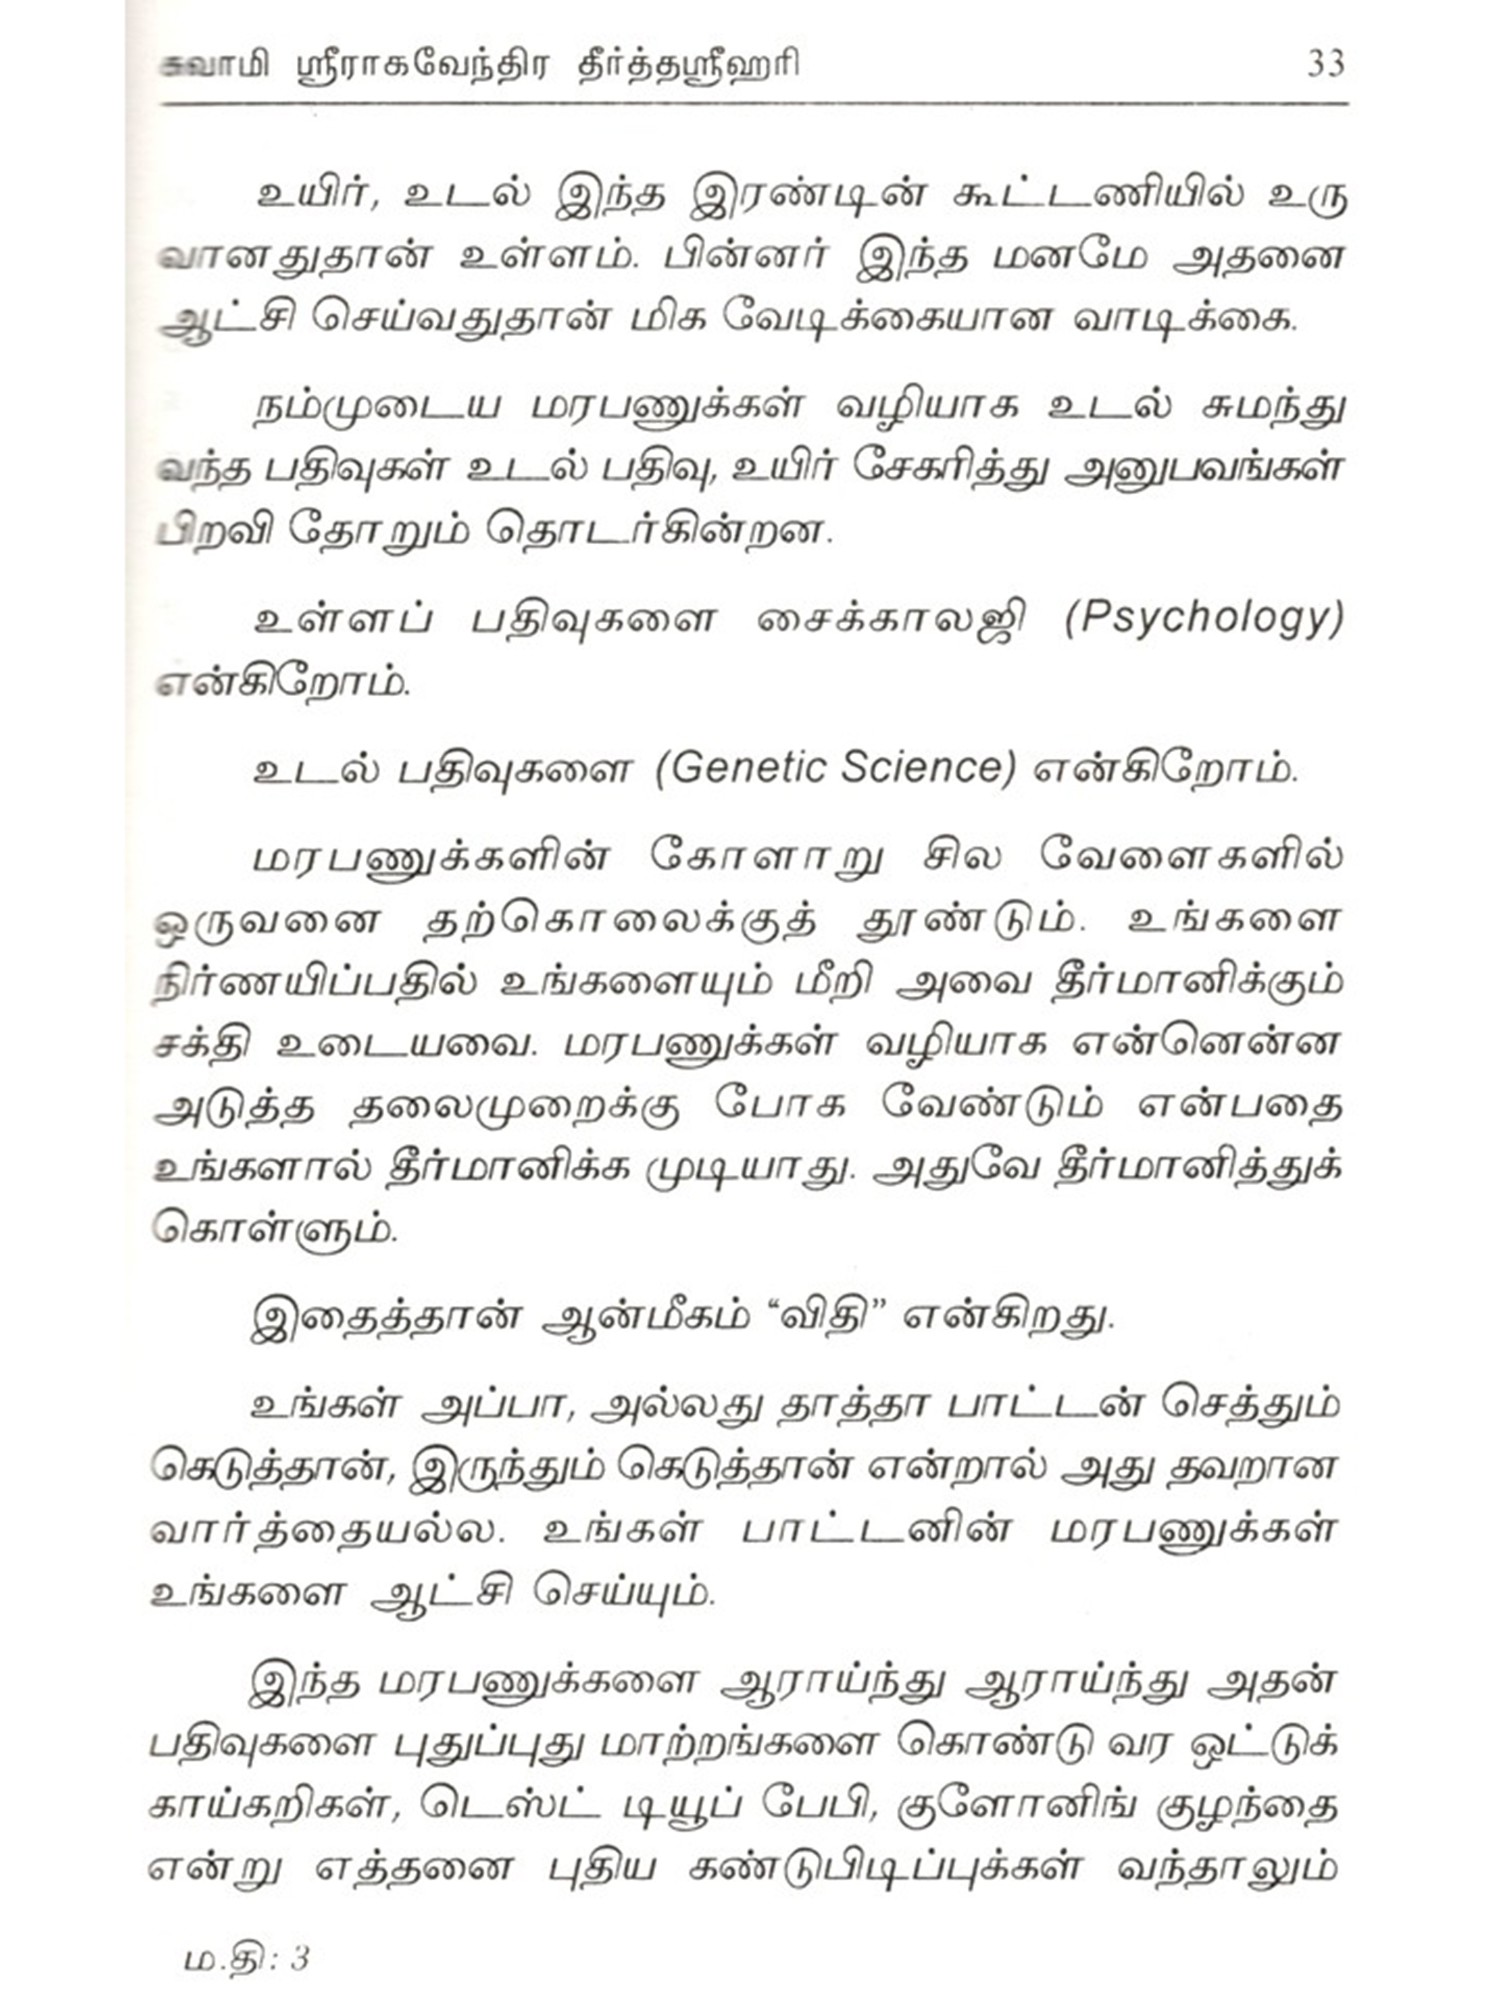 சுவாமி ஸ்ரீராகவேந்திர தீர்த்தஸ்ரீஹரி 33
உயிர், உடல் இந்த இரண்டின் கூட்டணியில் உரு
வானதுதான் உள்ளம். பின்னர் இந்த மனமே அதனை
ஆட்சி செய்வதுதான் மிக வேடிக்கையான வாடிக்கை.
நம்முடைய மரபணுக்கள் வழியாக உடல் சுமந்து
வந்த பதிவுகள் உடல் பதிவு, உயிர் சேகரித்து அனுபவங்கள்
பிறவி தோறும் தொடர்கின்றன.
உள்ளப் பதிவுகளை சைக்காலஜி (Psychology)
என்கிறோம்.
உடல் பதிவுகளை (Genetic Science) என்கிறோம்.
மரபணுக்களின் கோளாறு சில வேளைகளில்
ஒருவனை தற்கொலைக்குத் தூண்டும். உங்களை
நிர்ணயிப்பதில் உங்களையும் மீறி அவை தீர்மானிக்கும்
சக்தி உடையவை. மரபணுக்கள் வழியாக என்னென்ன
அடுத்த தலைமுறைக்கு போக வேண்டும் என்பதை
உங்களால் தீர்மானிக்க முடியாது. அதுவே தீர்மானித்துக்
கொள்ளும்.
இதைத்தான் ஆன்மீகம் “விதி” என்கிறது.
உங்கள் அப்பா, அல்லது தாத்தா பாட்டன் செத்தும்
கெடுத்தான், இருந்தும் கெடுத்தான் என்றால் அது தவறான
வார்த்தையல்ல. உங்கள் பாட்டனின் மரபணுக்கள்
உங்களை ஆட்சி செய்யும்.
இந்த மரபணுக்களை ஆராய்ந்து ஆராய்ந்து அதன்
பதிவுகளை புதுப்புது மாற்றங்களை கொண்டு வர ஒட்டுக்
காய்கறிகள், டெஸ்ட் டியூப் பேபி, குளோனிங் குழந்தை
என்று எத்தனை புதிய கண்டுபிடிப்புக்கள் வந்தாலும்
ம.தி: 3